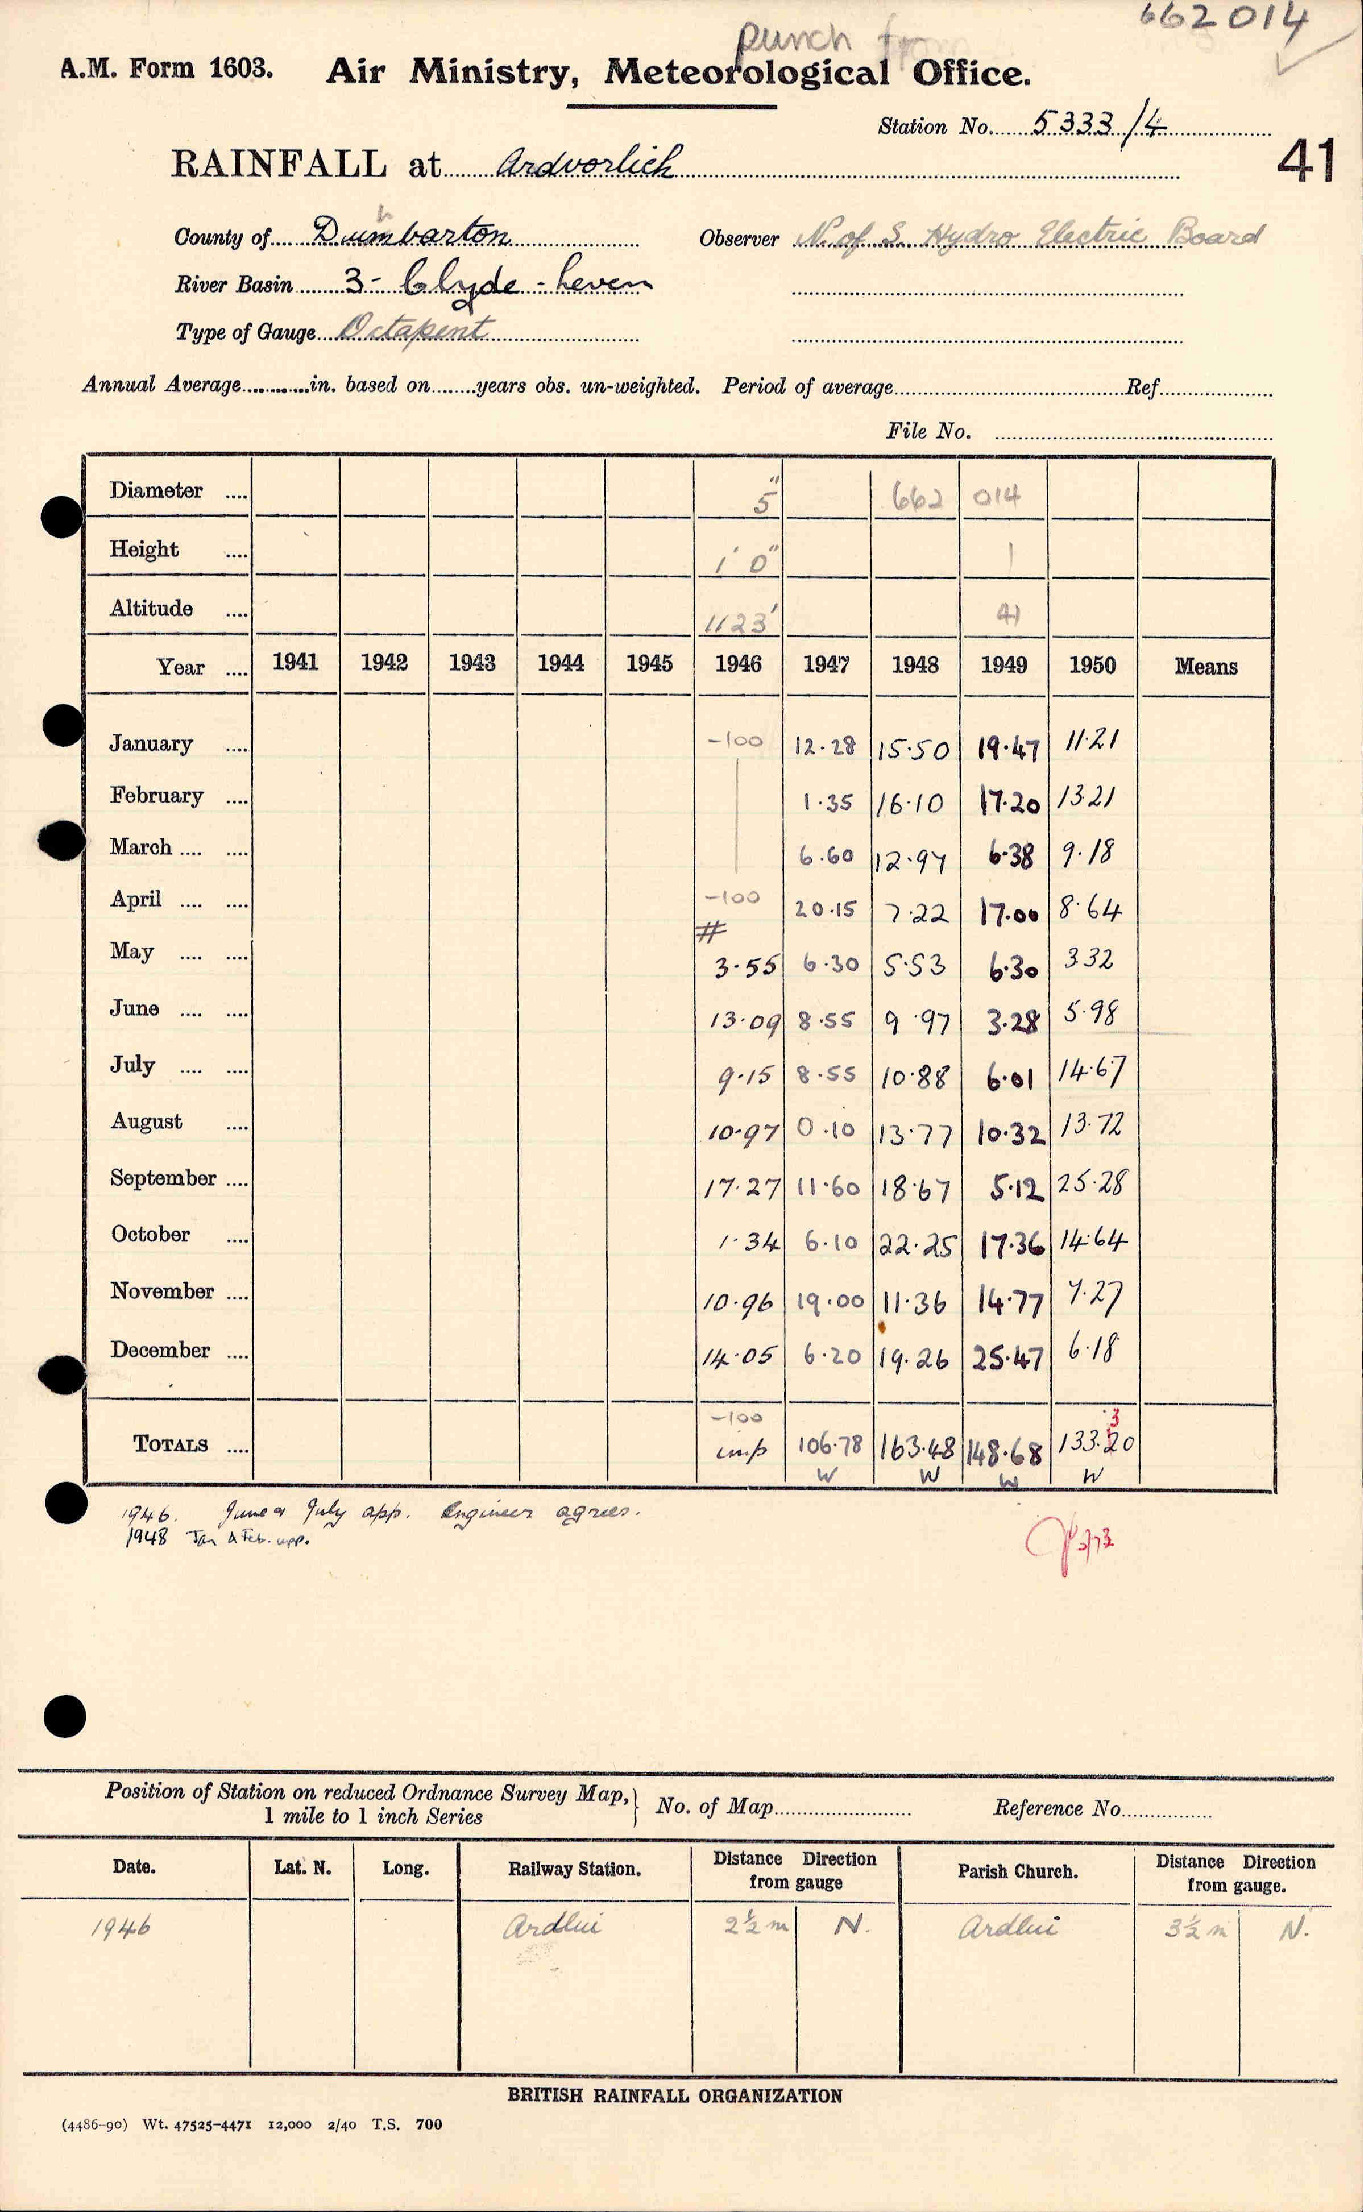 662014
punch from
A.M. Form 1603. Air Ministry, Meteorological Office.
Station No. 5333/4
41
RAINFALL at Ardvorlich
County of Dumbarton Observer N. of S. Hydro Electric Board
River Basin 3 - Clyde - Leven
Type of Gauge Octapent
Annual Average............in. based on........years obs. un-weighted. Period of average Ref.
File No.
Diameter .... 5" 662 014
Height .... 1' 0" 1
Altitude .... 1123' 41
Year .... 1941 1942 1943 1944 1945 1946 1947 1948 1949 1950 Means
January .... -100 12.28 15.50 19.47 11.21
February .... 1.35 16.10 17.20 13.21
March .... .... 6.60 12.97 6.38 9.18
April .... .... -100 20.15 7.22 17.00 8.64
#
May .... .... 3.55 6.30 5.53 6.30 3 32
June .... .... 13.09 8.55 9.97 3.28 5.98
July .... .... 9.15 8.55 10.88 6.01 14.67
August .... 10.97 0.10 13.77 10.32 13.72
September .... 17.27 11.60 18.67 5.12 25.28
October .... 1.34 6.10 22.25 17.36 14.64
November .... 10.96 19.00 11.36 14.77 7.27
December .... 14.05 6.20 19.26 25.47 6.18
-100 3
TOTALS .... imp 106.78 163.48 148.68 133.20
W W W W
1946. June & July app. Engineer agrees.
1948 Jan & Feb. app.
2/73
Position of Station on reduced Ordnance Survey Map, 1 mile to 1 inch Series } No. of Map Reference No.
Date. Lat. N. Long. Railway Station. Distance Direction from gauge Parish Church. Distance Direction from gauge.
1946 Ardlui 2½ m N. Ardlui 3½ m N.
BRITISH RAINFALL ORGANIZATION
(4486-90) Wt. 47525-4471 12,000 2/40 T.S. 700